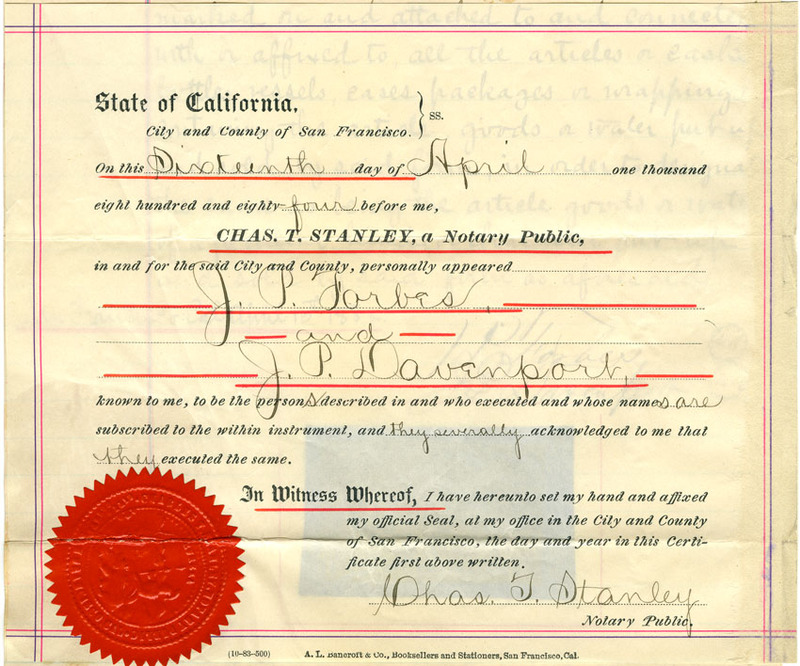 marked on and attached to and connected
with or affixed to all the articles or
vessels, cases, packages, or wrapping
goods or water
order to
article goods or
State of California,
City and County of San Francisco. } ss.
On this Sixteenth day of April one thousand
eight hundred and eighty-four before me,
CHAS. T. STANLEY, a Notary Public,
in and for the said City and County, personally appeared
J. P. Forbes,
and
J. P. Davenport,
known to me, to be the persons described in and who executed and whose names are
subscribed to the within instrument, and they severally acknowledged to me that
they executed the same.
In Witness Whereof, I have hereunto set my hand and affixed
my official Seal, at my office in the City and County
of San Francisco, the day and year in this Certi-
ficate first above written.
Chas. T. Stanley
Notary Public.
(10-83-500) A. L. Bancroft & Co., Booksellers and Stationers, San Francisco, Cal.